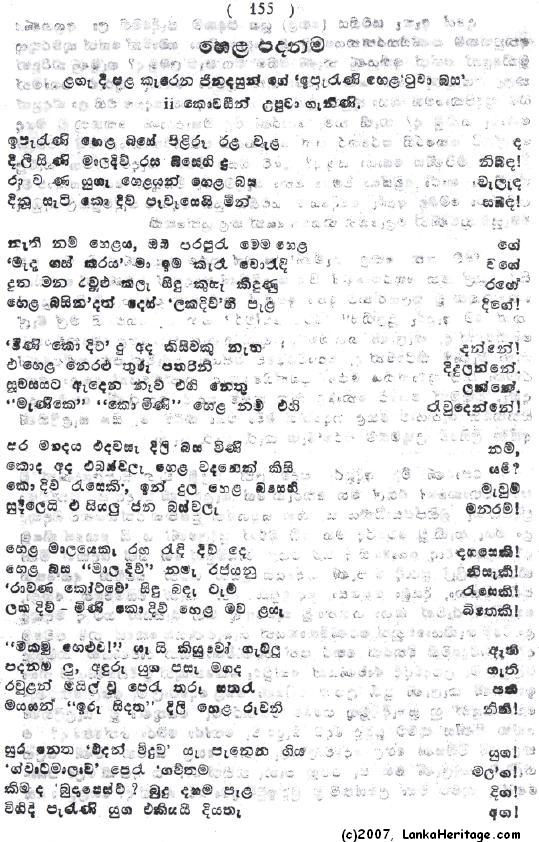 ( 155 )
හෙළ පදනම
ළගැ දී පළ කැරෙන ජිනදසුන් ගේ 'ඉපැරැණි හෙළ'ටුවා බස'
ii කොටසින් උපුටා ගැනිණි.
ඉපැරැණි හෙළ බසේ පිළිරූ රළ වැළ ද
දිලිසිණි මාලදිව් රස බසෙහි දු නිබඳ!
රාවණ යුග හෙළයන් හෙළ බස වැලැඳ
දිනූ සැටි කොදිව් පැවැසෙනි මින් සබඳ!
නැති නම් හෙළය, ඔබ පරපුරැ මෙම හෙළ ගේ
'මැද ගස් කරය' මා ඉම කැරැ වොරැදි වගේ
දුන මන රවුළු කලැ සිදු කුසැ කිදුණු රගේ
හෙළ බසින'දත් දෙස් 'ලක්දිව්'හි පැළ දිගේ!
'මිණි කොදිව' දු අද කිසිවකු නැත දන්නේ!
එහෙළ නෙරළු තුරු පතරිනි දිදුලන්නේ.
සුවසයට ඇදෙන නැව් එහි නෙතු ලන්නේ.
"මැණිකෙ" "කොමිණි" හෙළ නම් එහි රැවුදෙන්නේ!
පර මතදය එදවසැ දිලි බස විණි නම්,
කොද අද එබස්වලැ හෙළ වදනෙක් කිසි යම්?
කොදිව් රැසෙකි, ඉන් දුල හෙළ බසෙහි මැවුම්
සුදිලෙයි එ සියලු ජන බස්වලැ මනරම්!
හෙළ මාලයෙකැ රඟ රැදි දිව් දෙ දහසෙකි!
හෙළ බස "මාලදිව්" නමැ රජයනු නිසැකි!
'රාවණ කෝට්ටේ' සිඳු බඳැ වැම් රැසෙකි!
ලක්දිව් – මිණි කොදිව් හෙළ මව ළයැ බිතෙකි!
"මකමු හෙළුව!" යැ යි කියුවෝ ගැවිලු ඇති
පදනම ලු, අඳුරු යුග පසැ මගද ගැති
රවුළන් මයිල් වූ පෙරැ තරු සතරැ පති
මයහන් "ඉරු සිදුත" දිලි හෙළ රුවනි නිති!
සුර නෙත 'විදන් විදුව' යැ පැනෙන ගිය යුග!
'ග්වාටමාලාව්' පෙරැ 'ගව්තම මල'ග!
කිමද 'බුදාපෙස්ට්? බුදු දහම පැළ දිග!
විහිදි පැරැණි යුග එකියයි දියතැ අග!
(c)2007, LankaHeritage.com